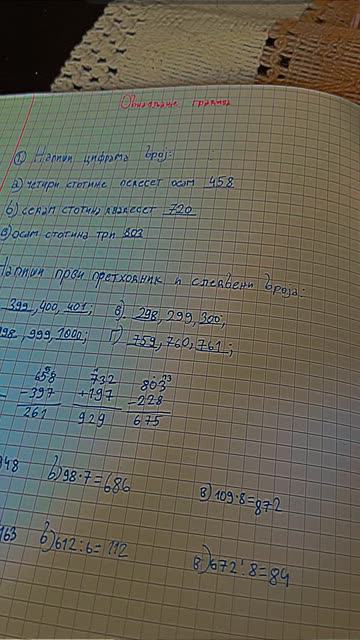 Обнављање градива
① Напиши цифрама број:
а) четири стотине педесет осам 458
б) седам стотина двадесет 720
в) осам стотина три 803
Напиши први претходник и следбеник броја:
399, 400, 401; в) 298, 299, 300;
998, 999, 1000; г) 759, 760, 761;
658 732 803
-397 +197 -228
261 929 675
948 б) 98·7=686 в) 109·8=872
163 б) 612:6=112 в) 672:8=84